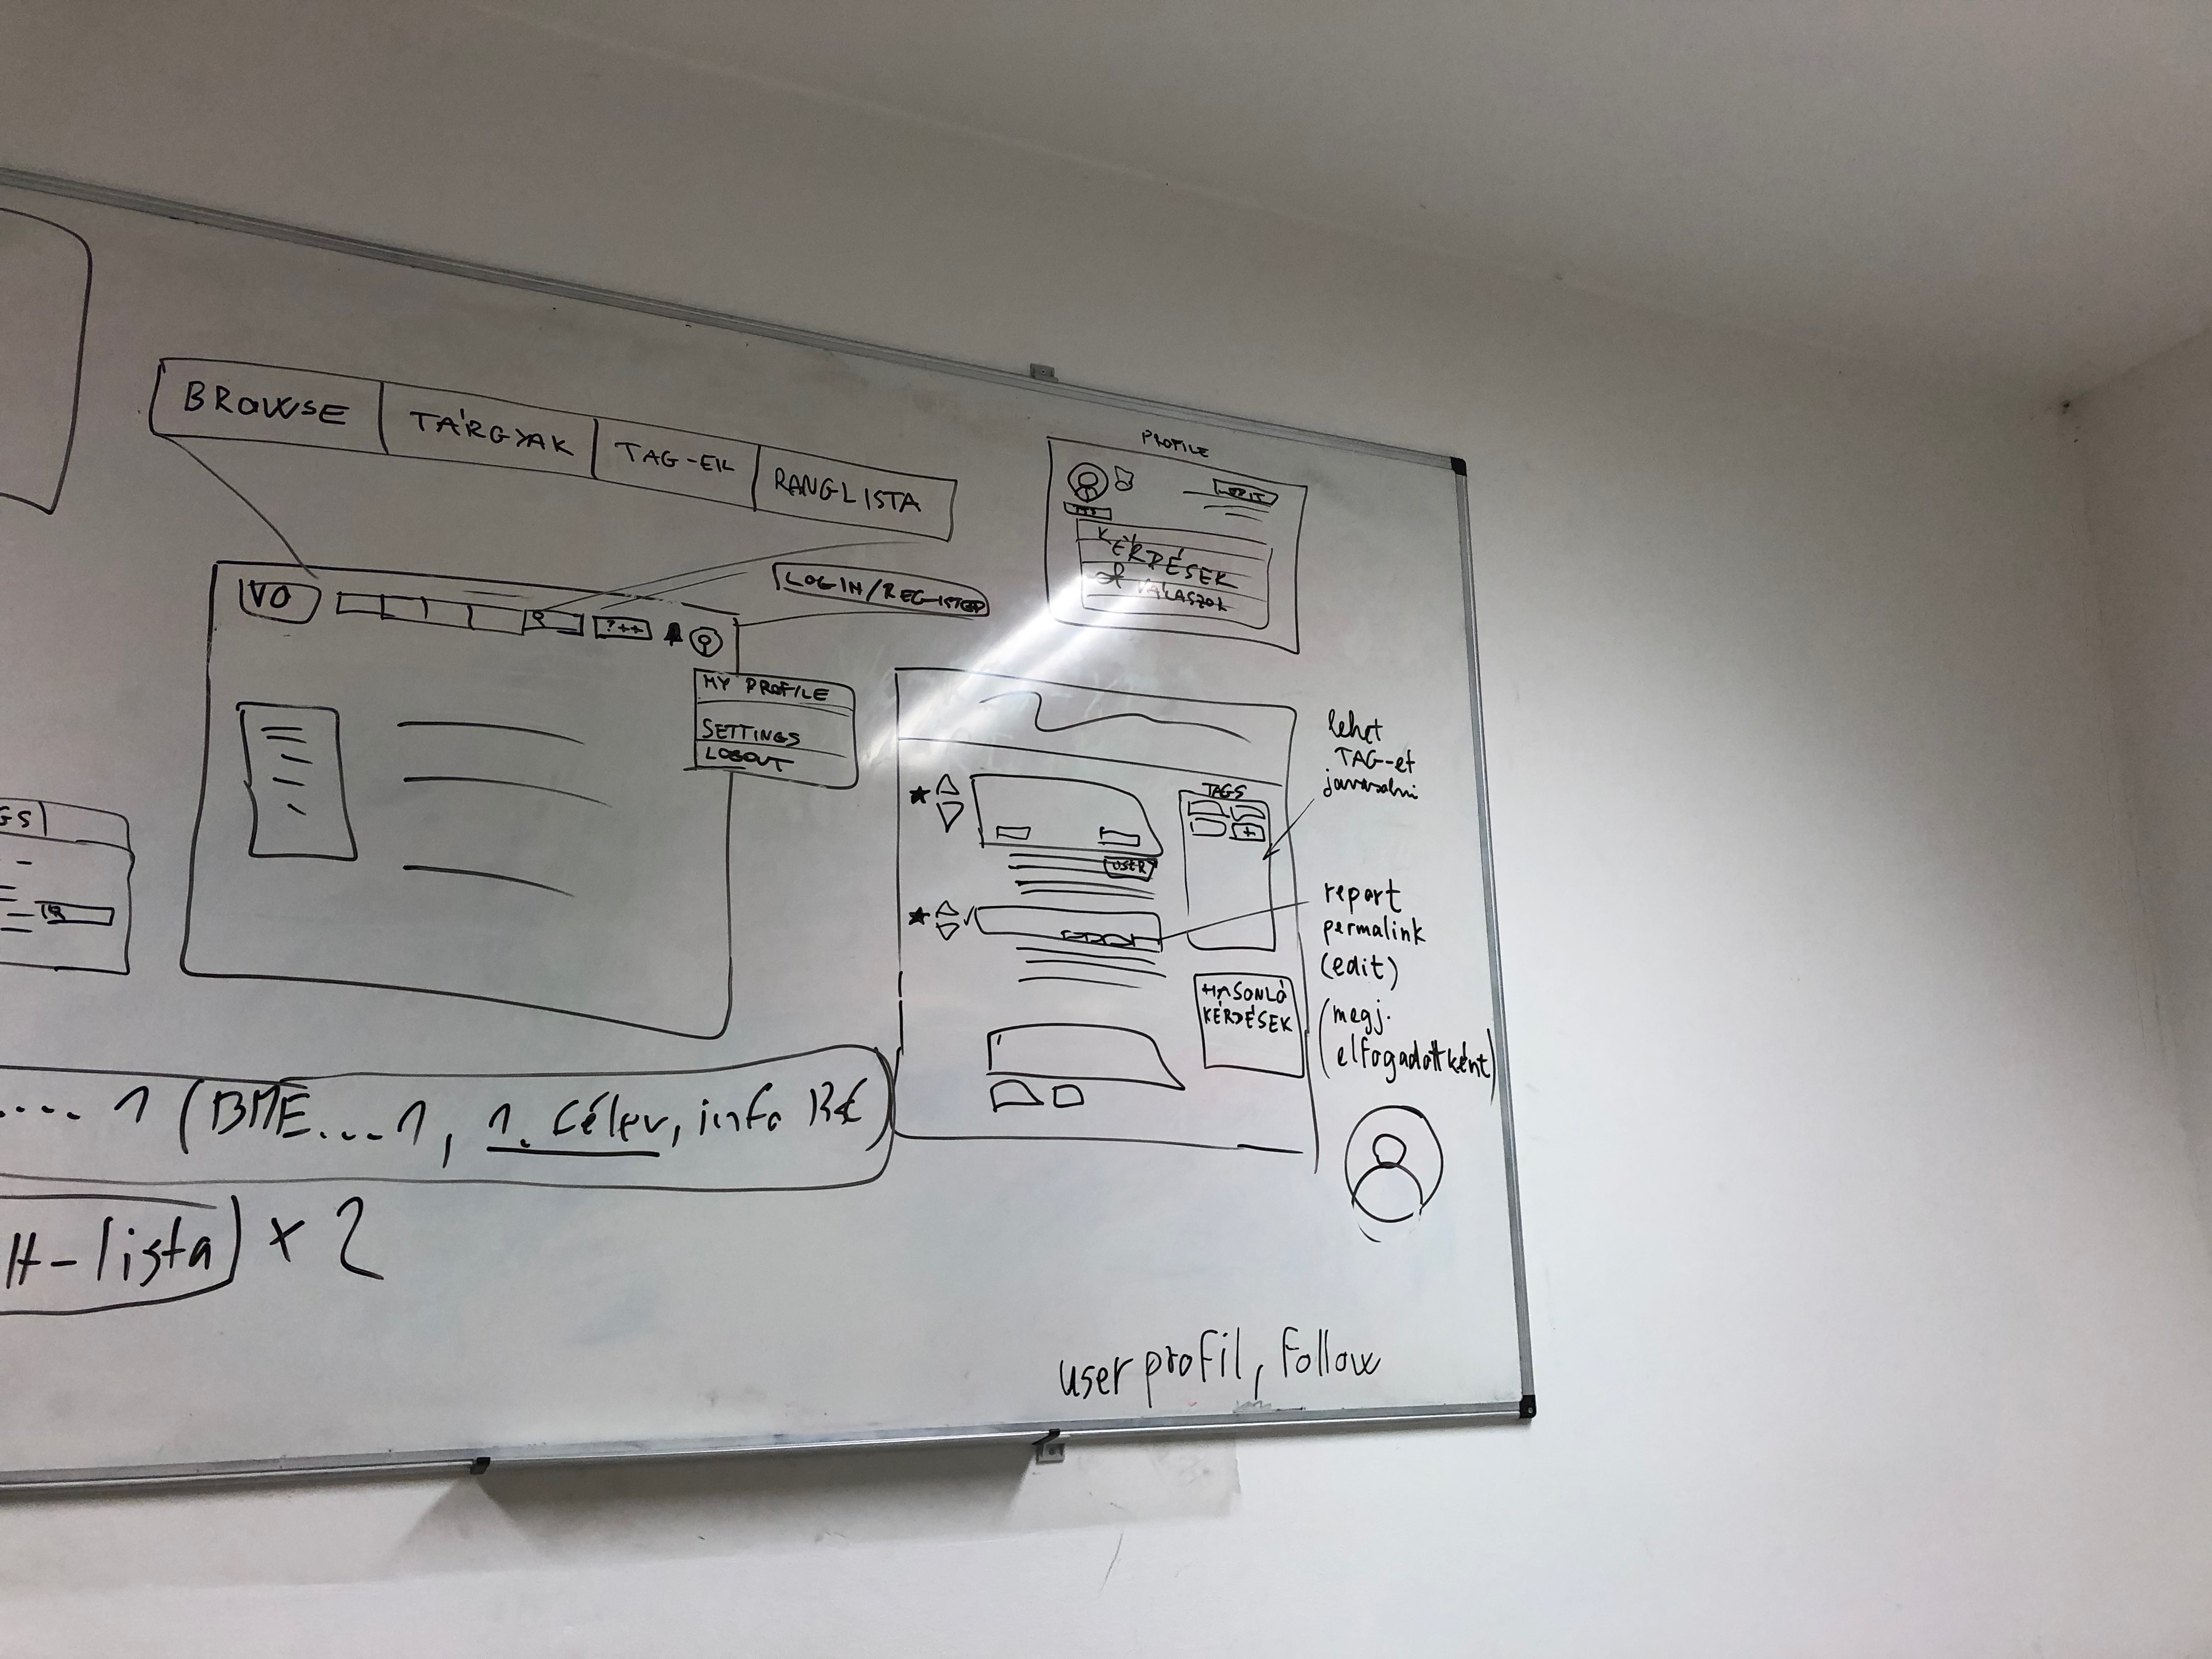 BROWSE
TÁRGYAK
TAG-EK
RANGLISTA
LOGIN/REGISTER
VO
?++
MY PROFILE
SETTINGS
LOGOUT
PROFILE
EDIT
KÉRDÉSEK
VÁLASZOK
TAGS
+
USER
HASONLÓ
KÉRDÉSEK
lehet
TAG-et
javasolni
report
permalink
(edit)
(megj.
elfogadottként)
GS
..... 1 (BME....1, 1. félév, info
H-lista) x 2
user profil, Follow